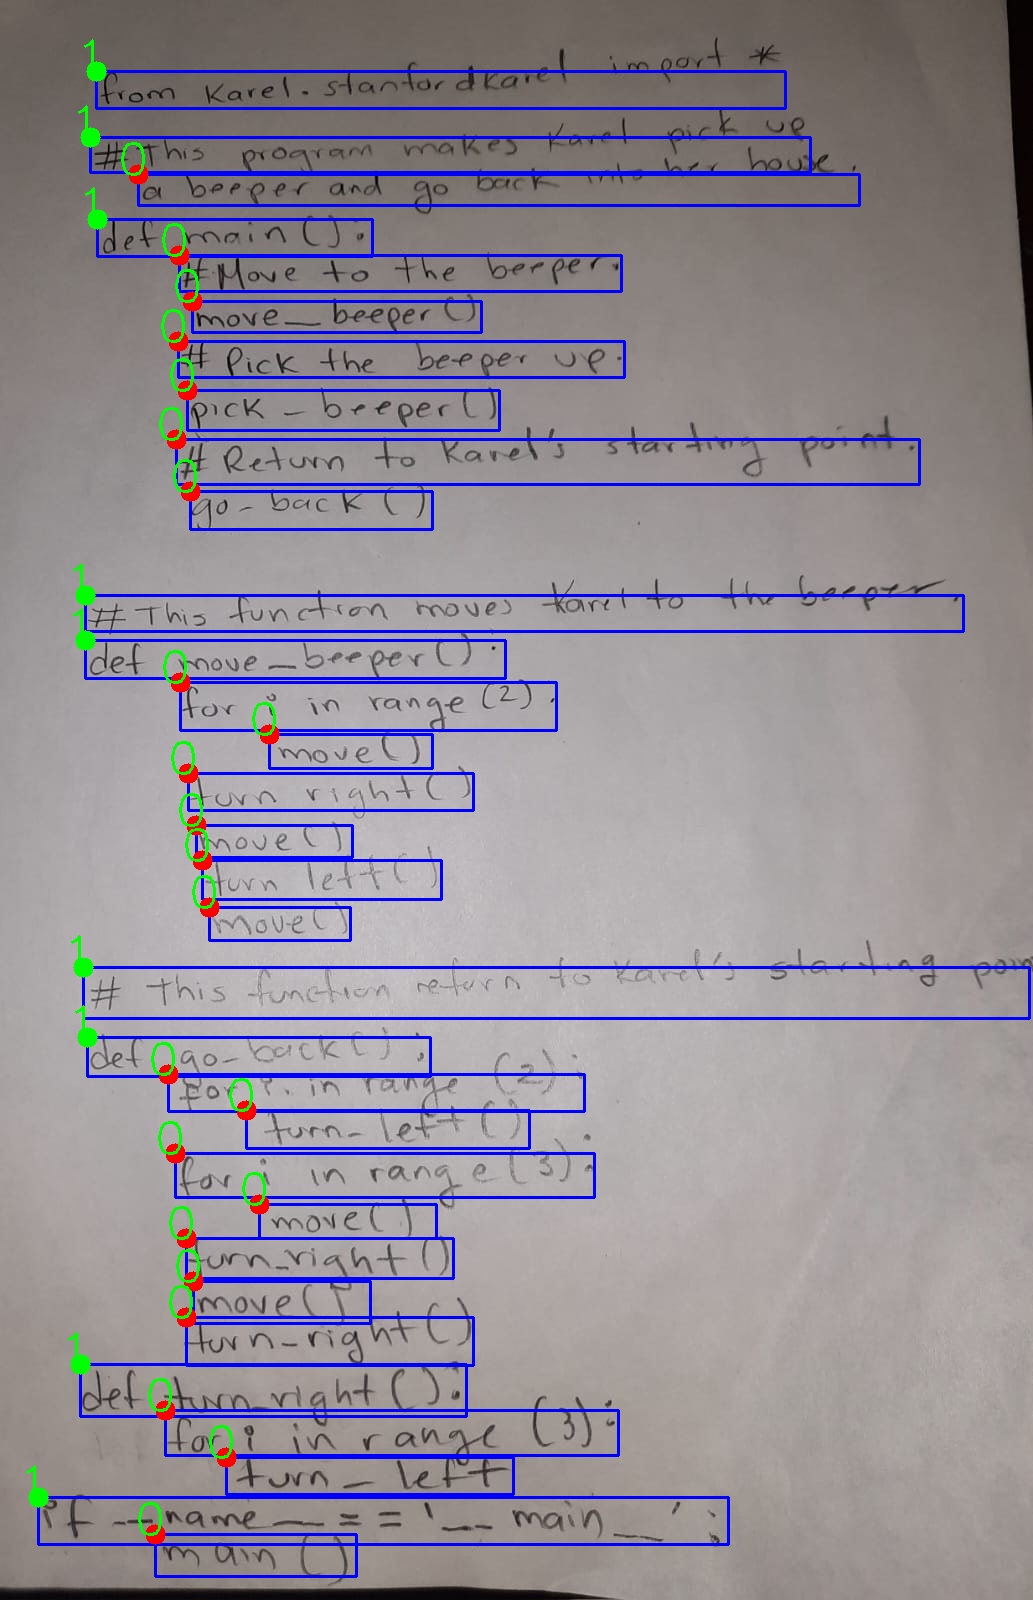 from Karel.stanfordkarel import *
# This program makes Karel pick up
a beeper and go back into her house.
def main():
# Move to the beeper.
move_beeper()
# Pick the beeper up.
pick-beeper()
# Return to Karel's starting point.
go-back()
# This function moves Karel to the beeper.
def move_beeper():
for i in range(2):
move()
turn right()
move()
turn left()
move()
# This function return to Karel's starting poin
def go-back():
for i in range (2):
turn-left()
for i in range(3):
move()
turn_right()
move()
turn-right()
def turn_right():
for i in range (3):
turn_left
if __name__ == '__main__':
main()